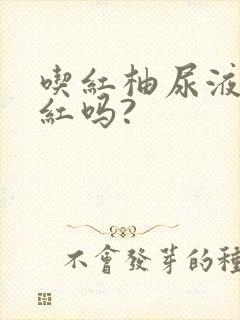 喫紅柚尿液
紅吗?
不會發芽的種